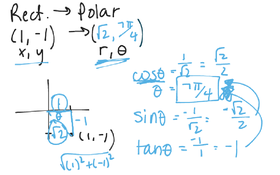 Rect. → Polar
(1, -1) → (√2, 7π/4)
x, y r, θ
cosθ = 1/√2 = √2/2
θ = 7π/4
sinθ = -1/√2 = -√2/2
tanθ = -1/1 = -1
1
θ
-1
√2
(1, -1)
√(1)²+(-1)²